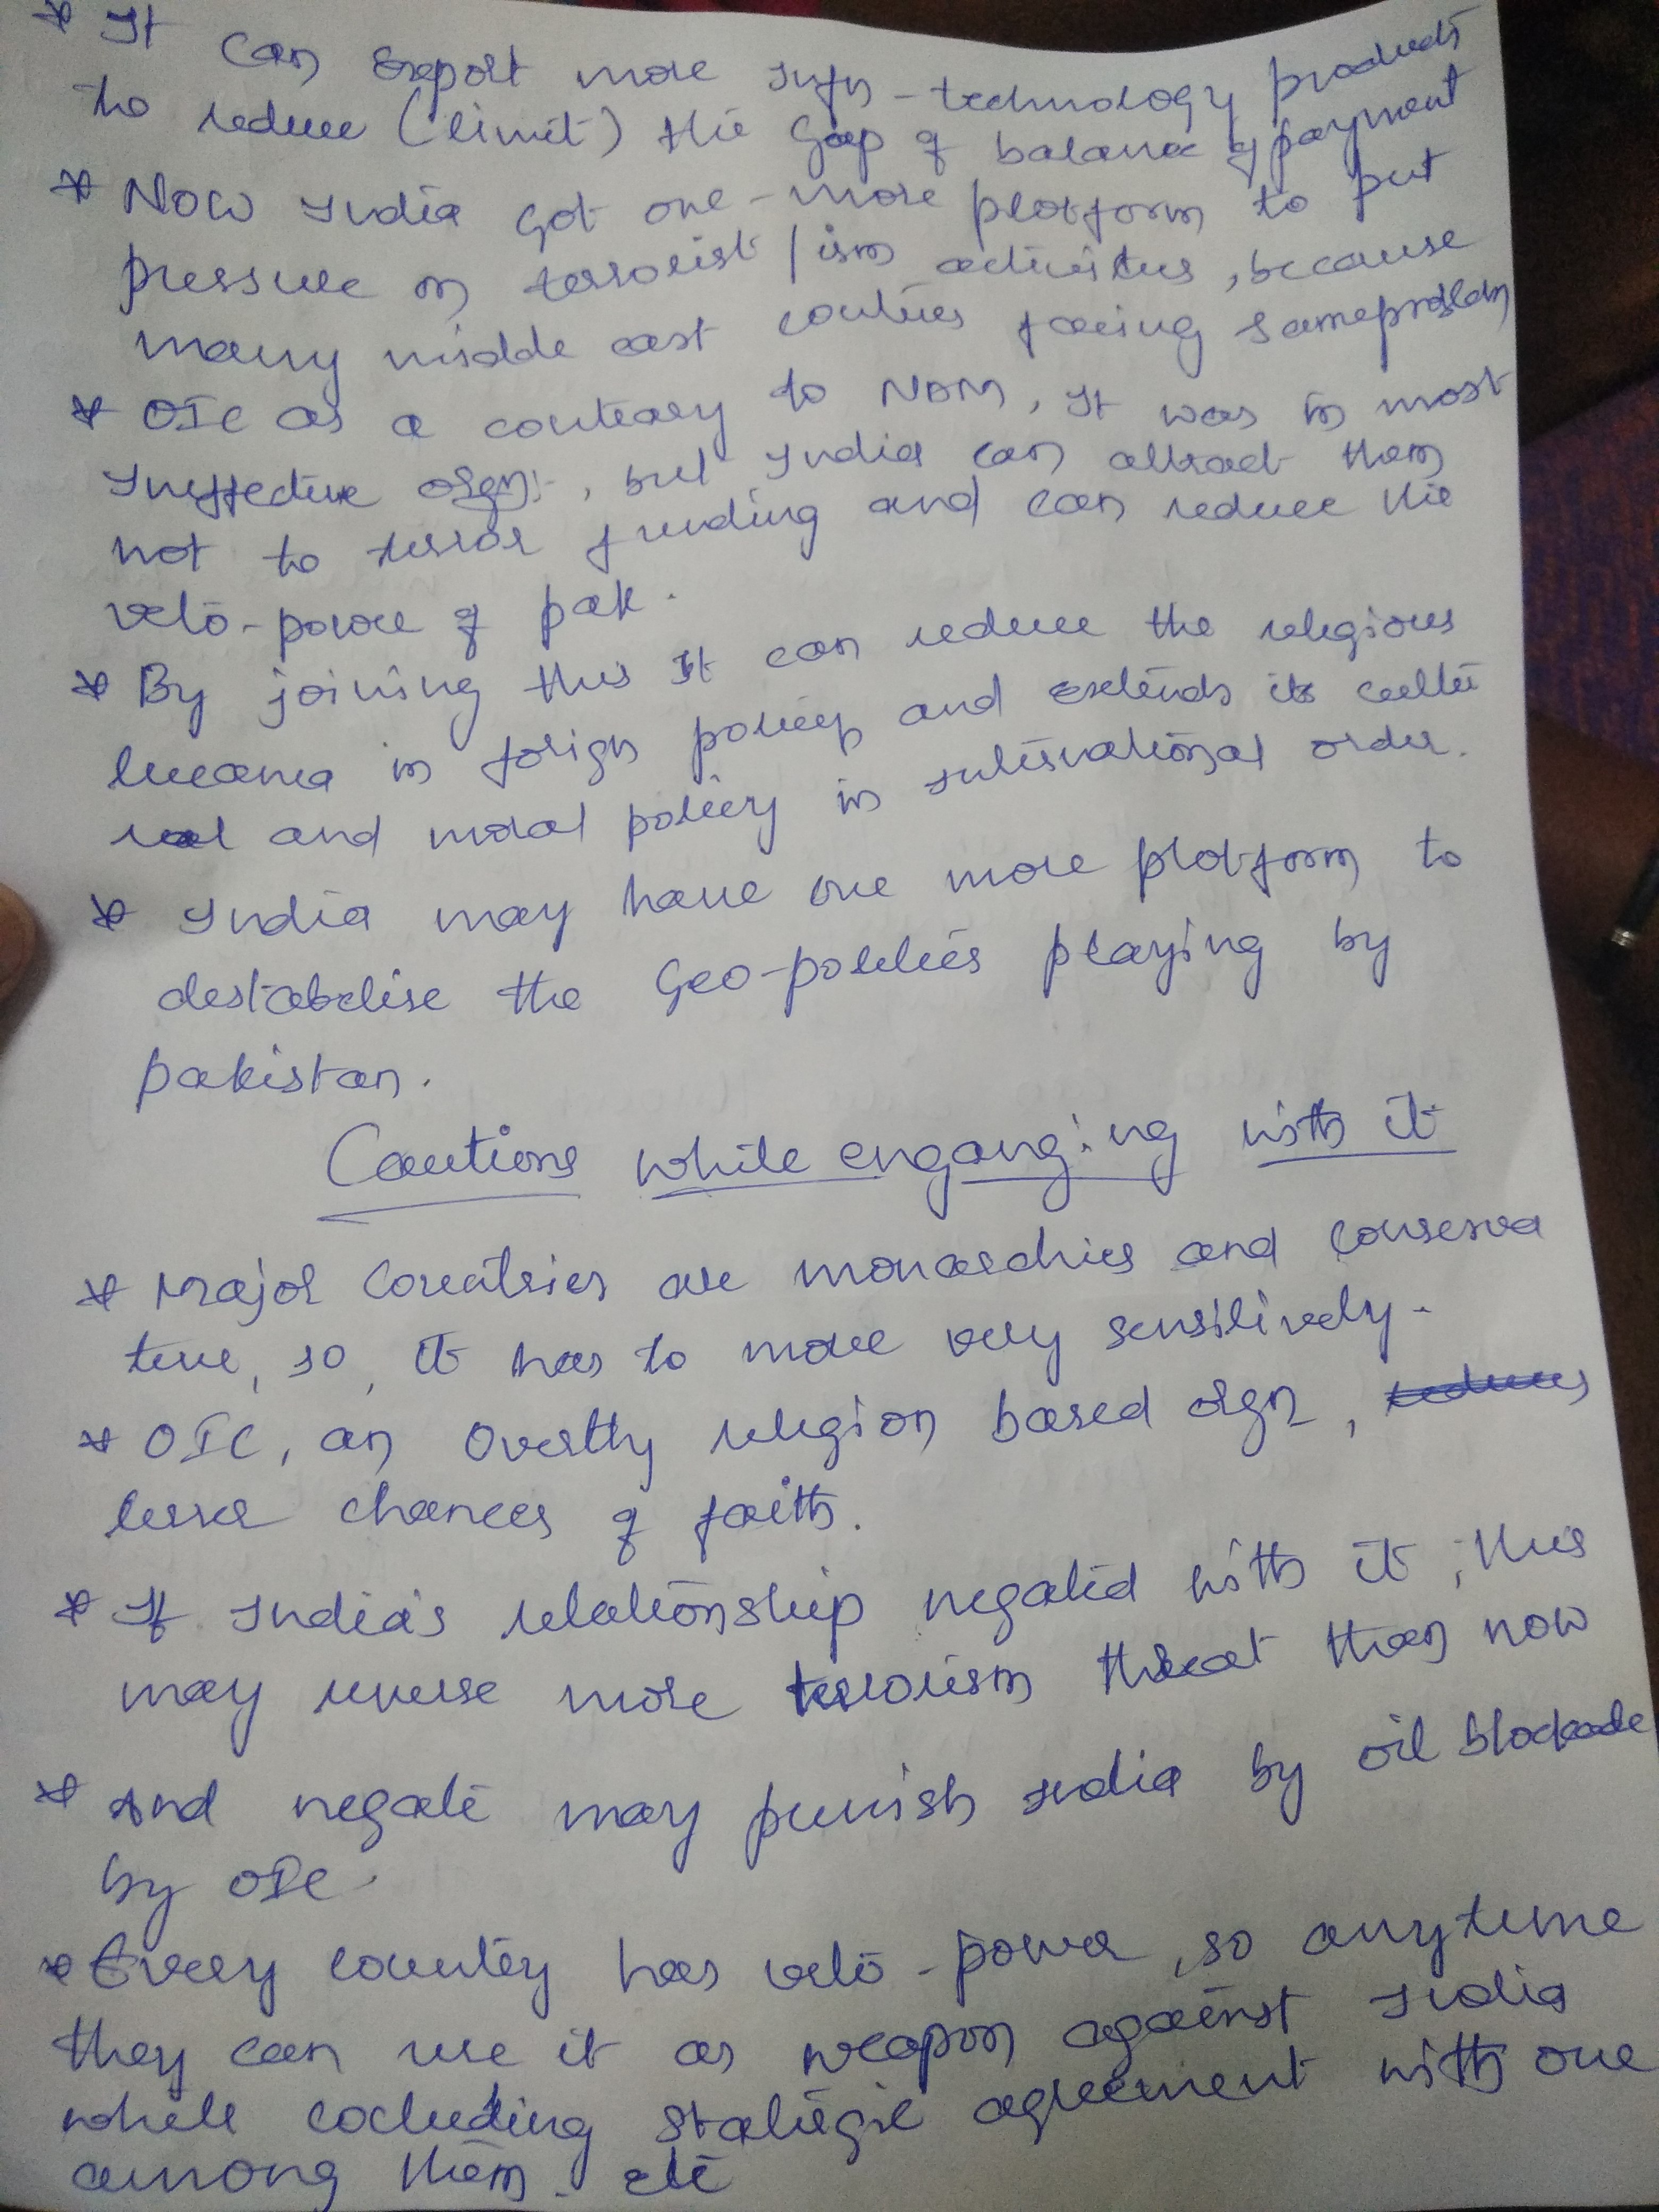 * It can export more Infn-technology products
to reduce (limit) the gap of balance of payment
* Now India got one-more platform to put
pressure on terrorist/ism activities, because
many middle east coutries facing same problem
* OIC as a contrary to NAM, It was in most
Ineffective orgn:-, but India can attract them
not to terror funding and can reduce the
veto-power of pak.
* By joining this It can reduce the religious
in forign policy and extends its cultu
ral and moral policy in international order.
* India may have one more platform to
destabelise the Geo-politics playing by
pakistan.
Cautions while enganging with it
* Major Countries are monarchies and conserva
tive, so, it has to move very sensitively.
* OIC, an overtly religion based orgn, reduces
lesser chances of faith.
* If India's relationship negated with it, this
may reverse more terrorism threat than now
* And negate may punish India by oil blockade
by OIC.
* Every country has veto-power, so anytime
they can use it as weapon against India
while cocluding stategic agreement with one
among them. etc